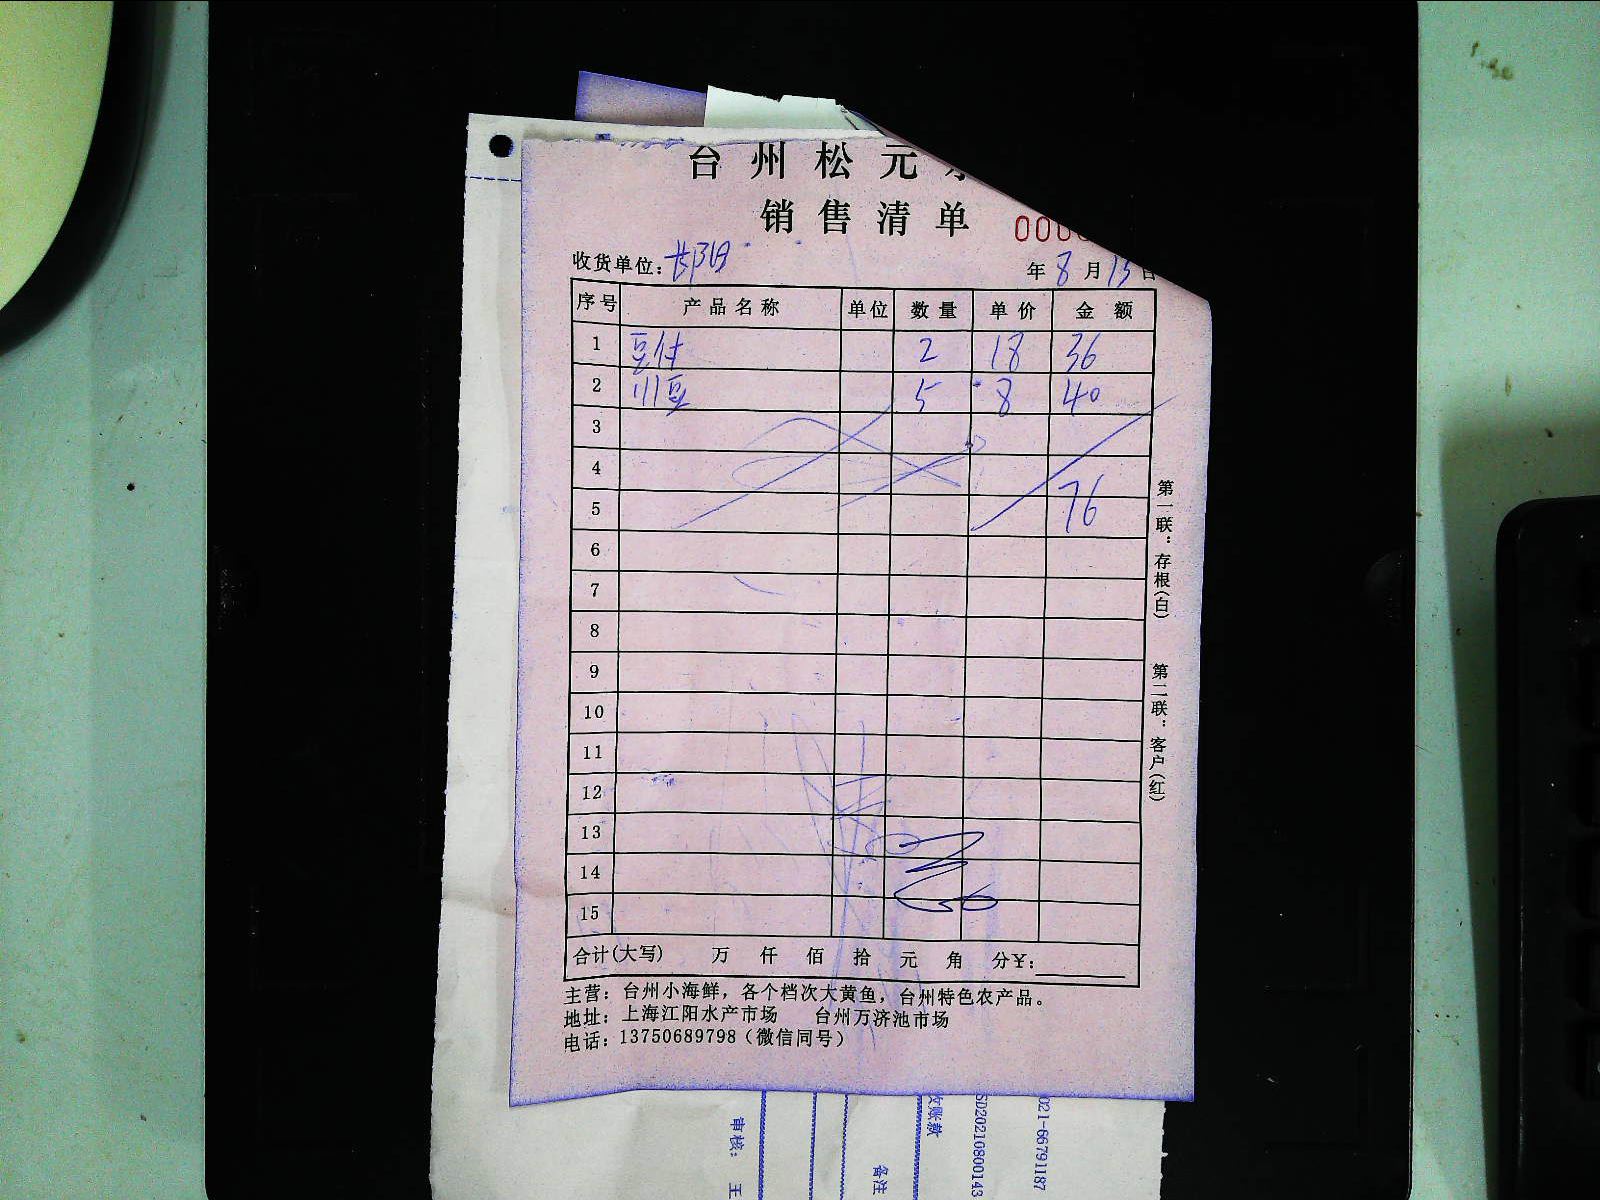 台州松元
销售清单 000
收货单位：长阳 年8月15日
序号 产品名称 单位 数量 单价 金额
1 豆付 2 18 36
2 川豆 5 8 40
3
4
5 76
6
7
8
9
10
11
12
13
14
15
合计(大写) 万 仟 佰 拾 元 角 分¥:
主营：台州小海鲜，各个档次大黄鱼，台州特色农产品。
地址：上海江阳水产市场 台州万济池市场
电话：13750689798（微信同号）
第一联：存根(白) 第二联：客户(红)
021-66791187
SD20210800143
收账款
备注
审核： 王